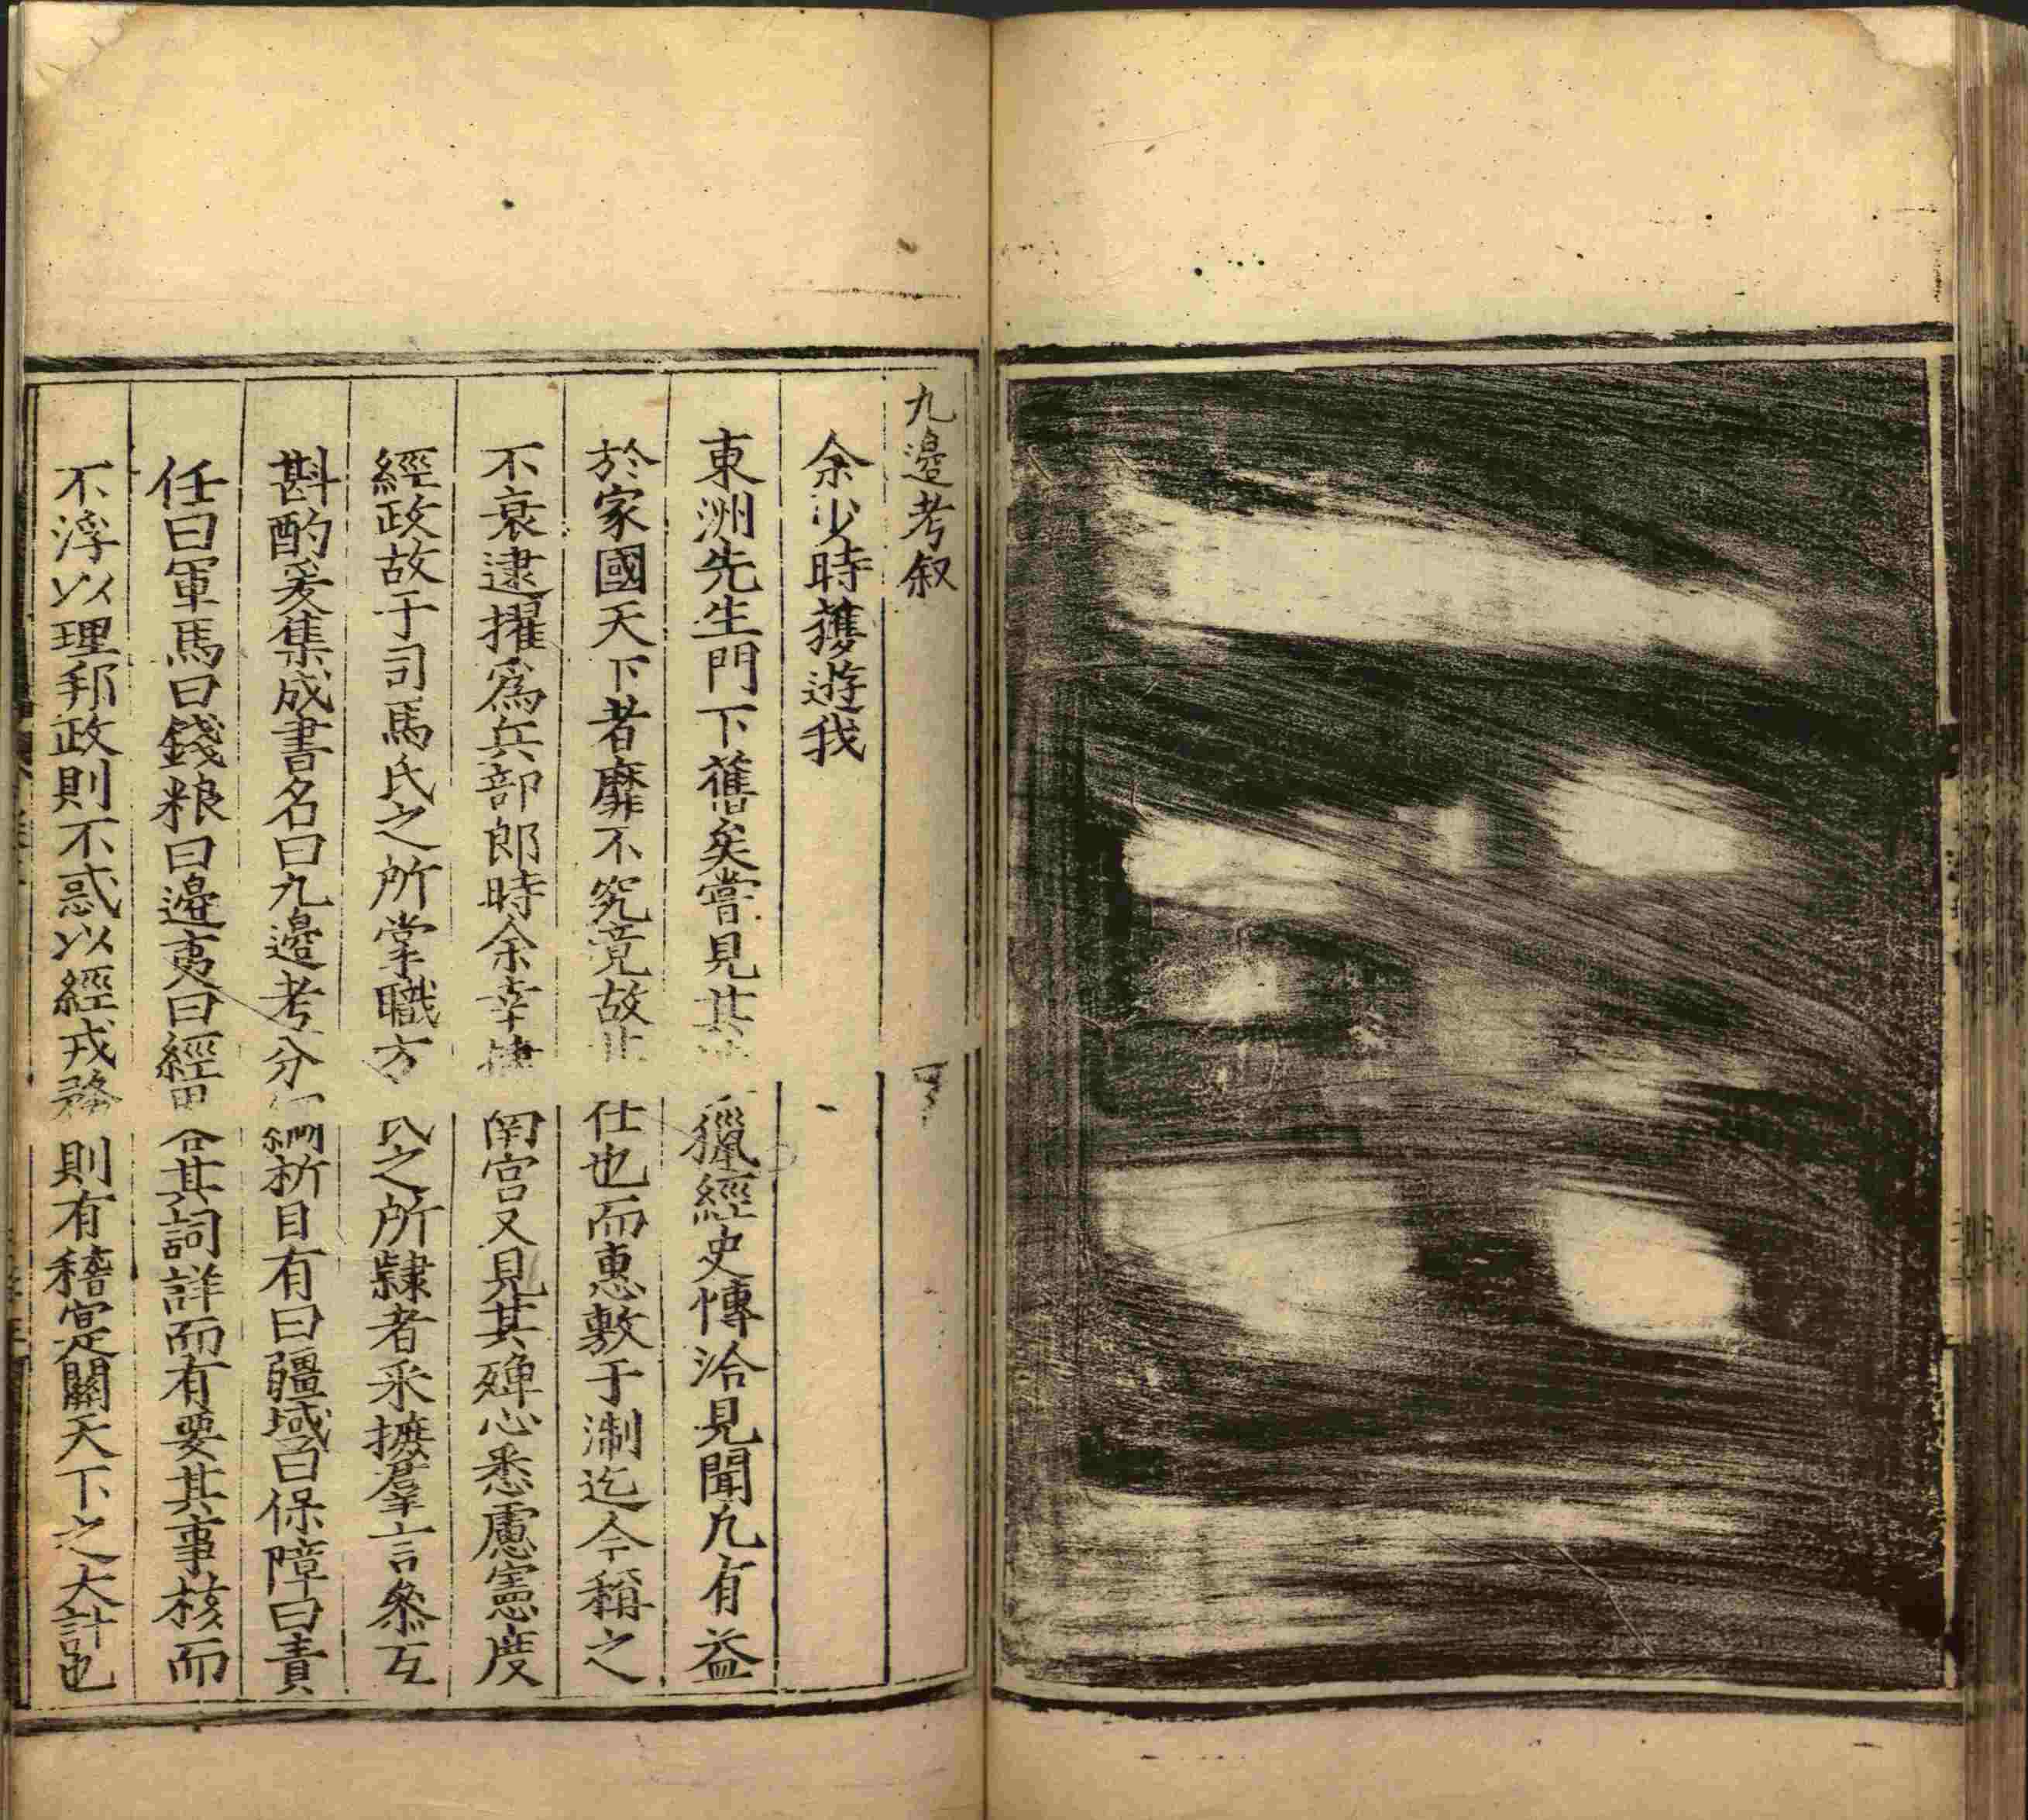 九邊考叙
余少時獲遊我
東洲先生門下舊矣嘗見其獵經史慱洽見聞凡有益
於家國天下者靡不究竟故仕也而惠敷于淛迄今稱之
不衰逮擢爲兵部郎時余幸南宫又見其殫心悉慮憲度
經政故于司馬氏之所掌職方氏之所隸者采摭羣言叅互
斟酌爰集成書名曰九邊考分綱析目有曰疆域曰保障曰責
任曰軍馬曰錢粮曰邊夷曰經畧其詞詳而有要其事核而
不浮以理邦政則不惑以經戎務則有稽寔關天下之大計也